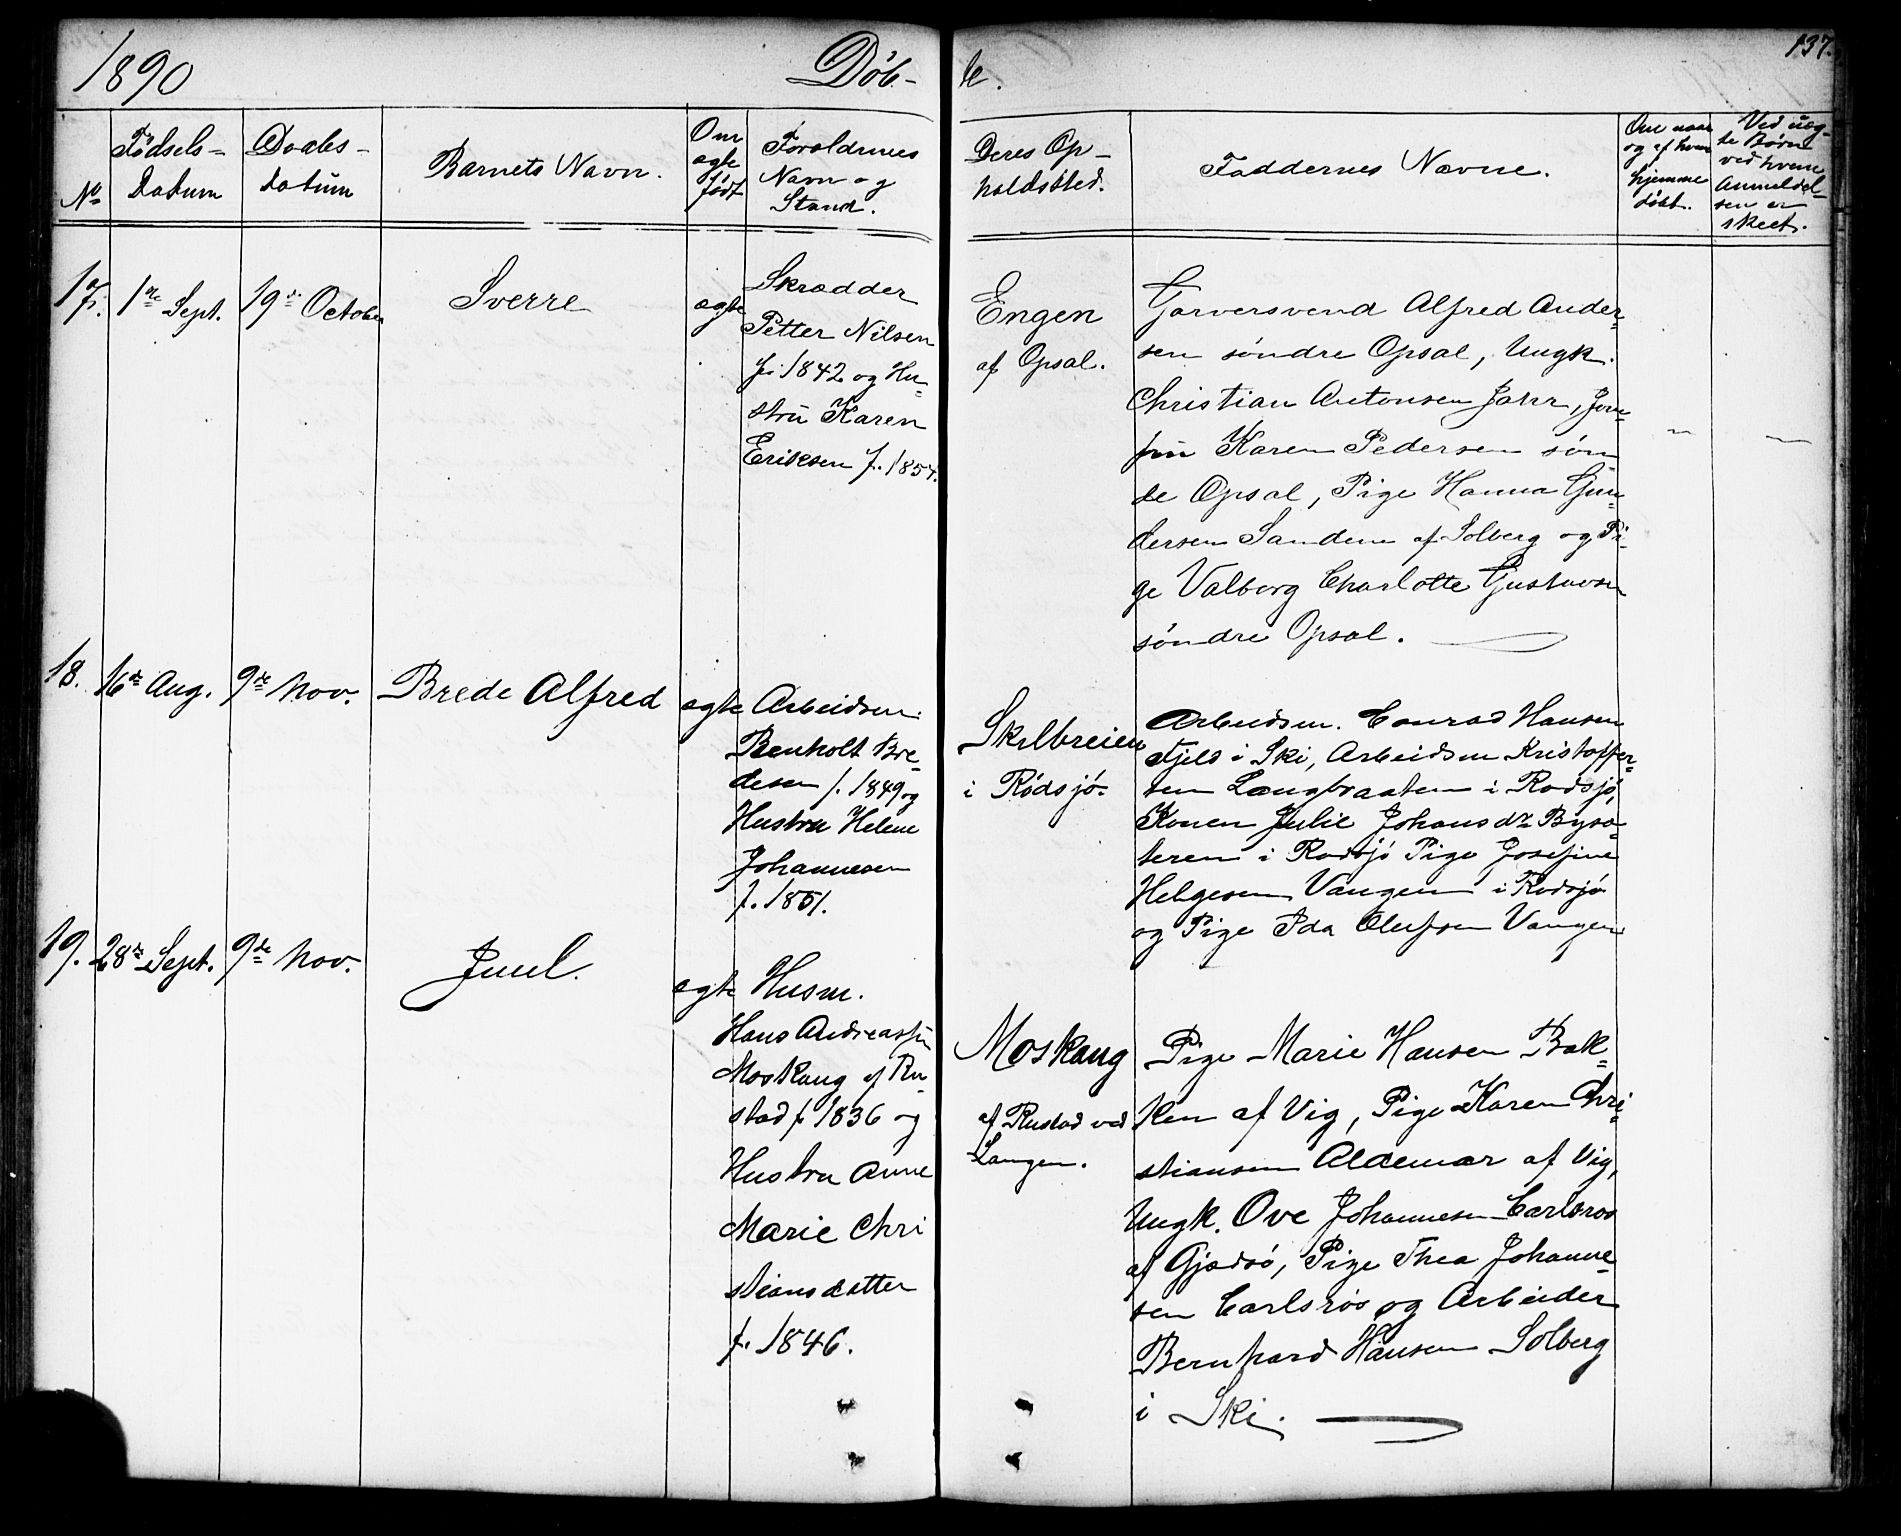 1890 Døb-
te.
137.
No
Fødsels-
Datum
Daabs-
datum
Barnets Navn.
Om
ægte
født
Forældrenes
Navn og
Stand.
Deres Op-
holdssted.
Faddernes Navne.
Om naar
og af hvem
hjemme
døbt.
Ved uæg-
te Børn
ved hvem
Anmeldel-
sen er
skeet.
17. 1ste Sept. 19de October Sverre ægte
Skrædder
Petter Nilsen
f. 1842 og Hu-
stru Karen
Eriksen f. 1857.
Engen
af Opsal.
Garversvend Alfred Ander-
sen søndre Opsal, Ungk.
Christian Antonsen Jahr, Jom-
fru Karen Pedersen søn-
de Opsal, Pige Hanna Gun-
dersen Sandene af Solberg og Pi-
ge Valborg Charlotte Gustavsen
søndre Opsal.
18. 16de Aug. 9de Nov. Brede Alfred ægte
Arbeidsm.
Benholt Bre-
desen f. 1849 og
Hustru Helene
Johannesen
f. 1851.
Skilbreien
i Rødsjø.
Arbeidsm. Conrad Hansen
Fjeld i Ski, Arbeidsm Kristoffer-
sen Langbraaten i Rødsjø,
Konen Julie Johansdr Bysæ-
teren i Rødsjø Pige Josefine
Helgesen Vangen i Rødsjø
og Pige Ida Olufsen Vangen
19. 28de Sept. 9de Nov. Juul. ægte
Husm.
Hans Andreassen
Moskaug af Ru-
stad f. 1836 og
Hustru Anne
Marie Chri
stiansdatter
f. 1846.
Moskaug
af Rustad ved
Langen.
Pige Marie Hansen Bak-
ken af Vig, Pige Karen Chri-
stiansen Aldemar af Vig,
Ungk. Ove Johannesen Carlsros
af Gjedsø, Pige Thea Johanne-
sen Carlsrøs og Arbeider
Bernhard Hansen Solberg
i Ski.